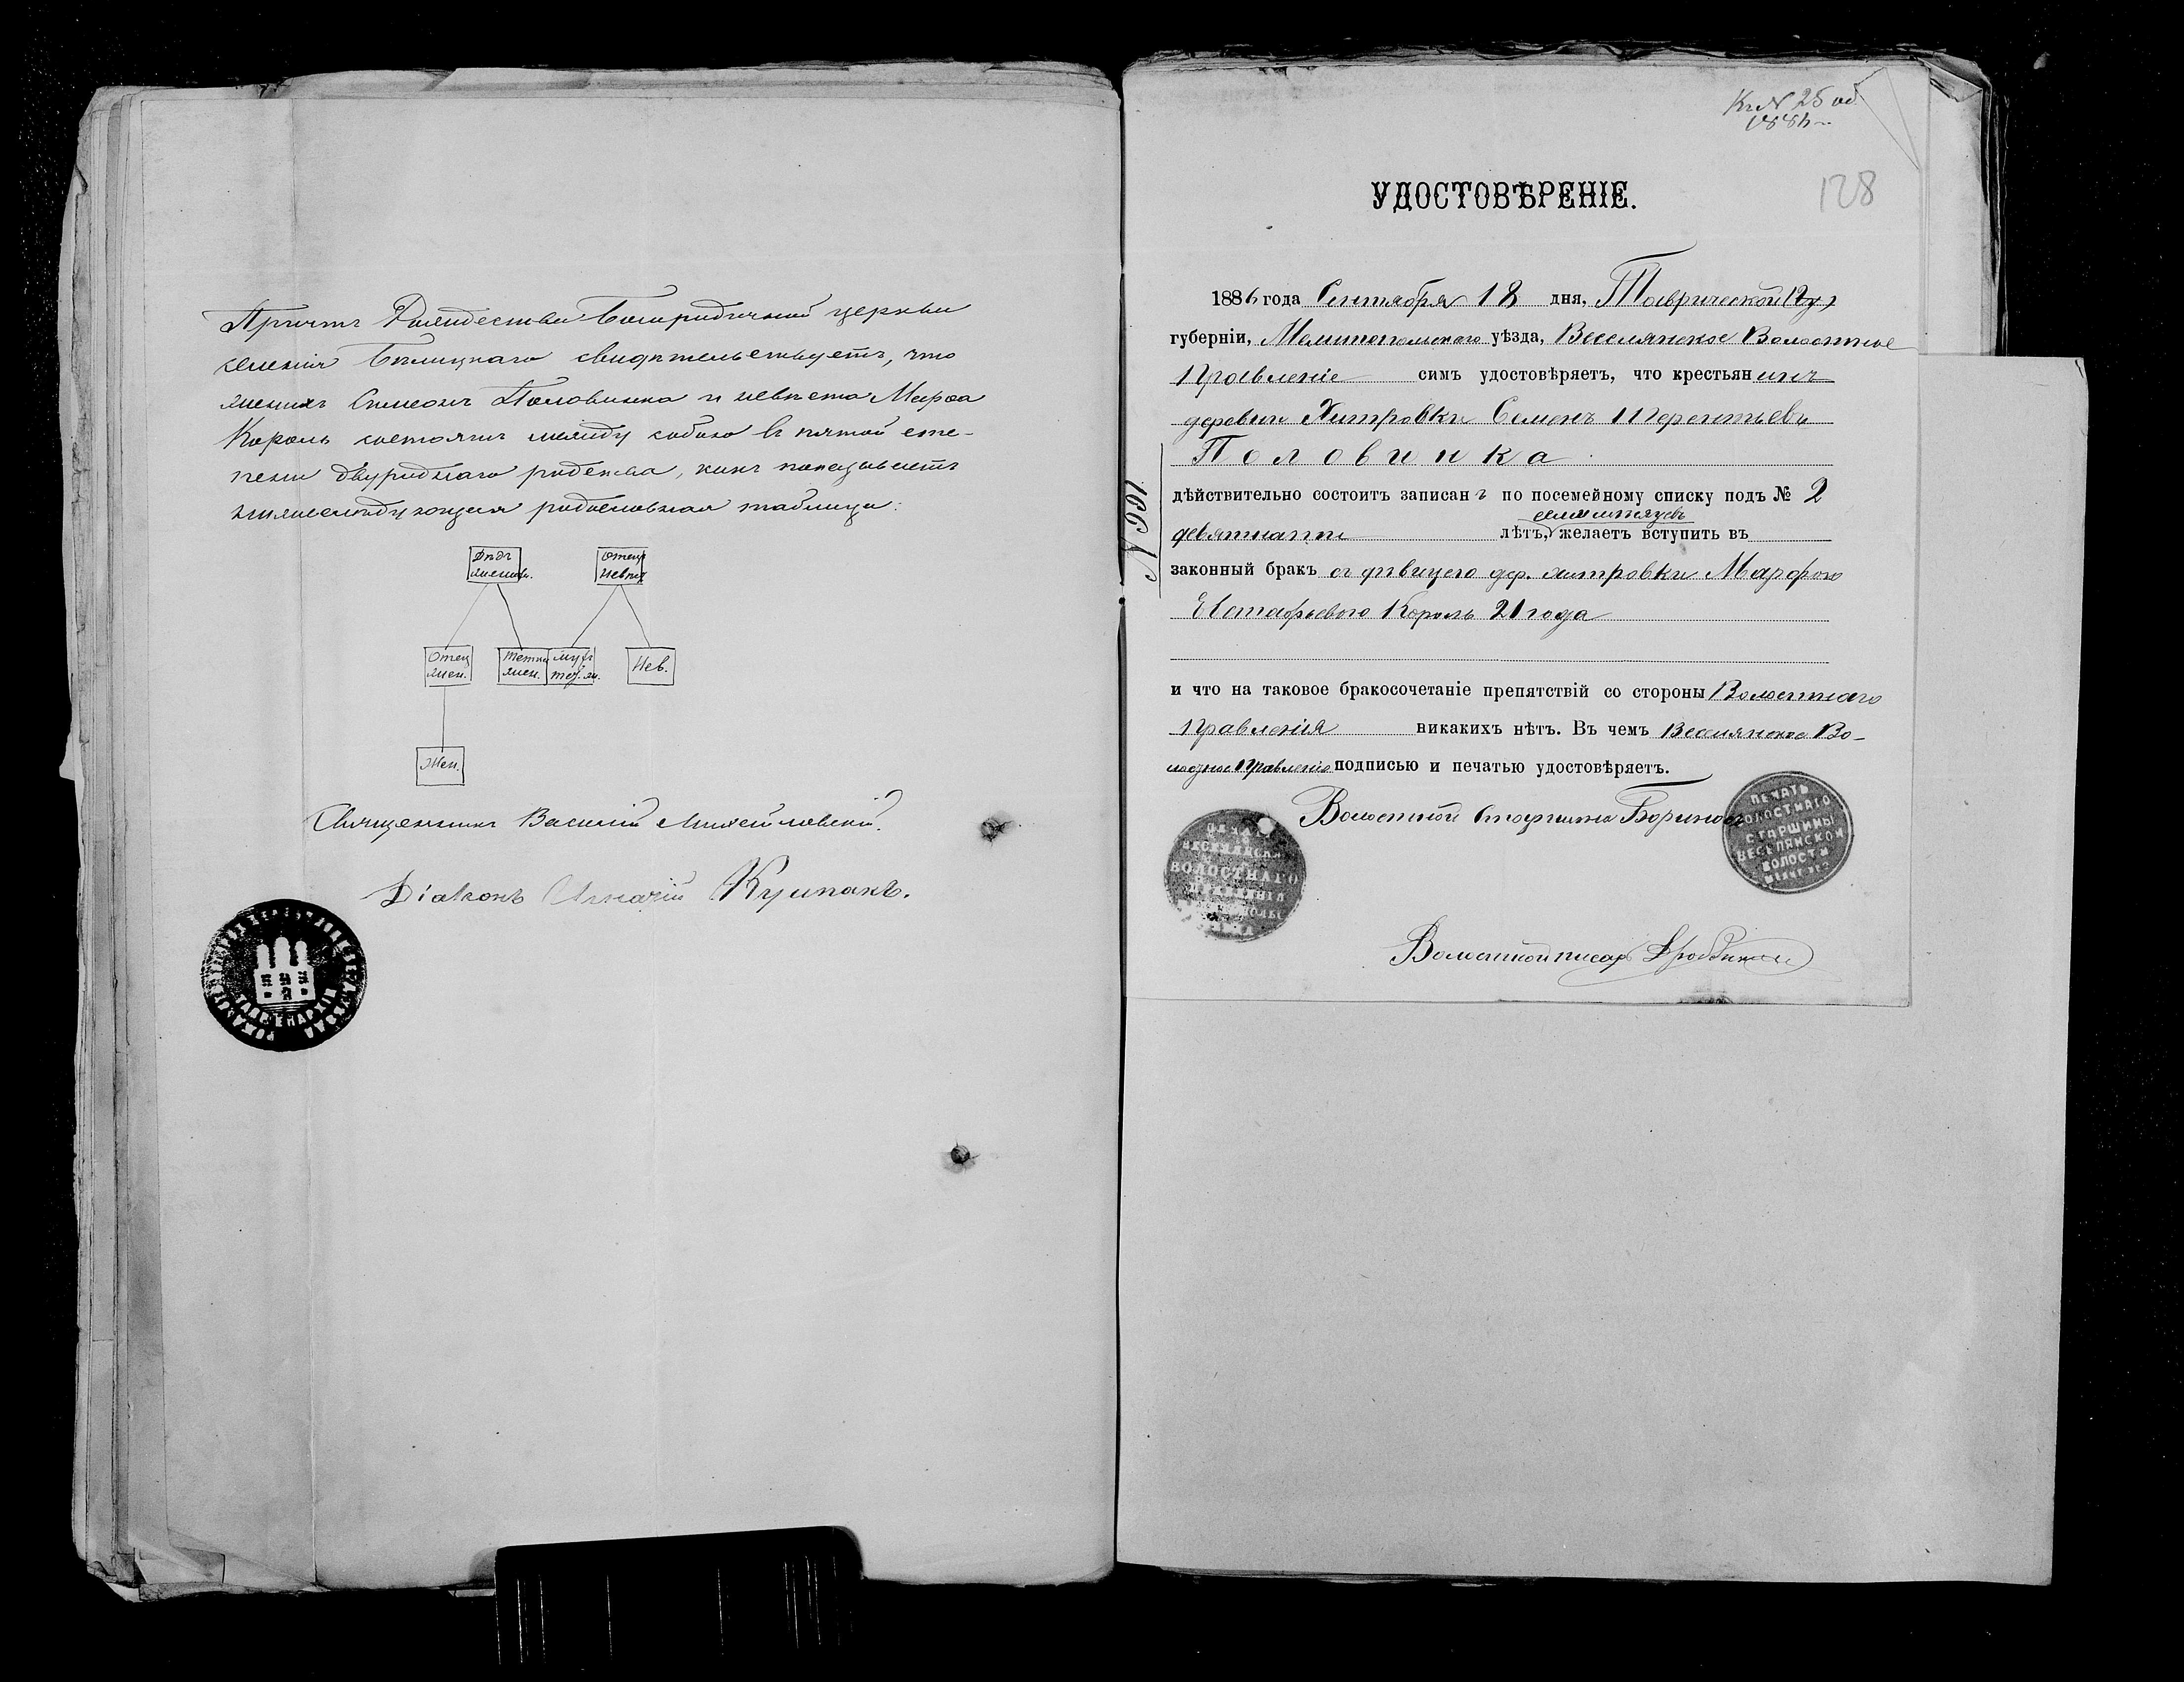 Причтъ Рождества Богородичной церкви
селенія Бѣлицкаго свидѣтельствуетъ, что
женихъ Симеонъ Половинка и невѣста Марѳа
Король состоятъ между собою въ пятой сте-
пени двуроднаго родства, какъ показываетъ
нижеслѣдующая родословная таблица:
Дѣдъ жених. Отецъ невѣс
Отец жен. Тетка жен. мужъ тет. ж. Нев.
Жен.
Священникъ Василій Михайловскій.
Діаконъ Игнатій
128
УДОСТОВѢРЕНІЕ.
1886 года Сентября 18 дня, Таврической
губерніи, Мелитопольскаго уѣзда, Веселянское Волостное
Правленіе симъ удостовѣряетъ, что крестьянинъ
деревни Хитровки Семенъ Терентьевъ
Половинка
дѣйствительно состоитъ записанъ по посемейному списку подъ № 2
лѣтъ, желаетъ вступить въ
законный бракъ съ дѣвицею дер. Хитровки Марфою
Евстафьевою Король 21 года
и что на таковое бракосочетаніе препятствій со стороны Волостнаго
Правленія никакихъ нѣтъ. Въ чемъ Веселянское Во-
лостное Правленіе подписью и печатью удостовѣряетъ.
Волостной Старшина
ПЕЧАТЬ ВОЛОСТНАГО СТАРШИНЫ ВЕСЕЛЯНСКОЙ ВОЛОСТИ
ВОЛОСТНАГО
Волостной писарь